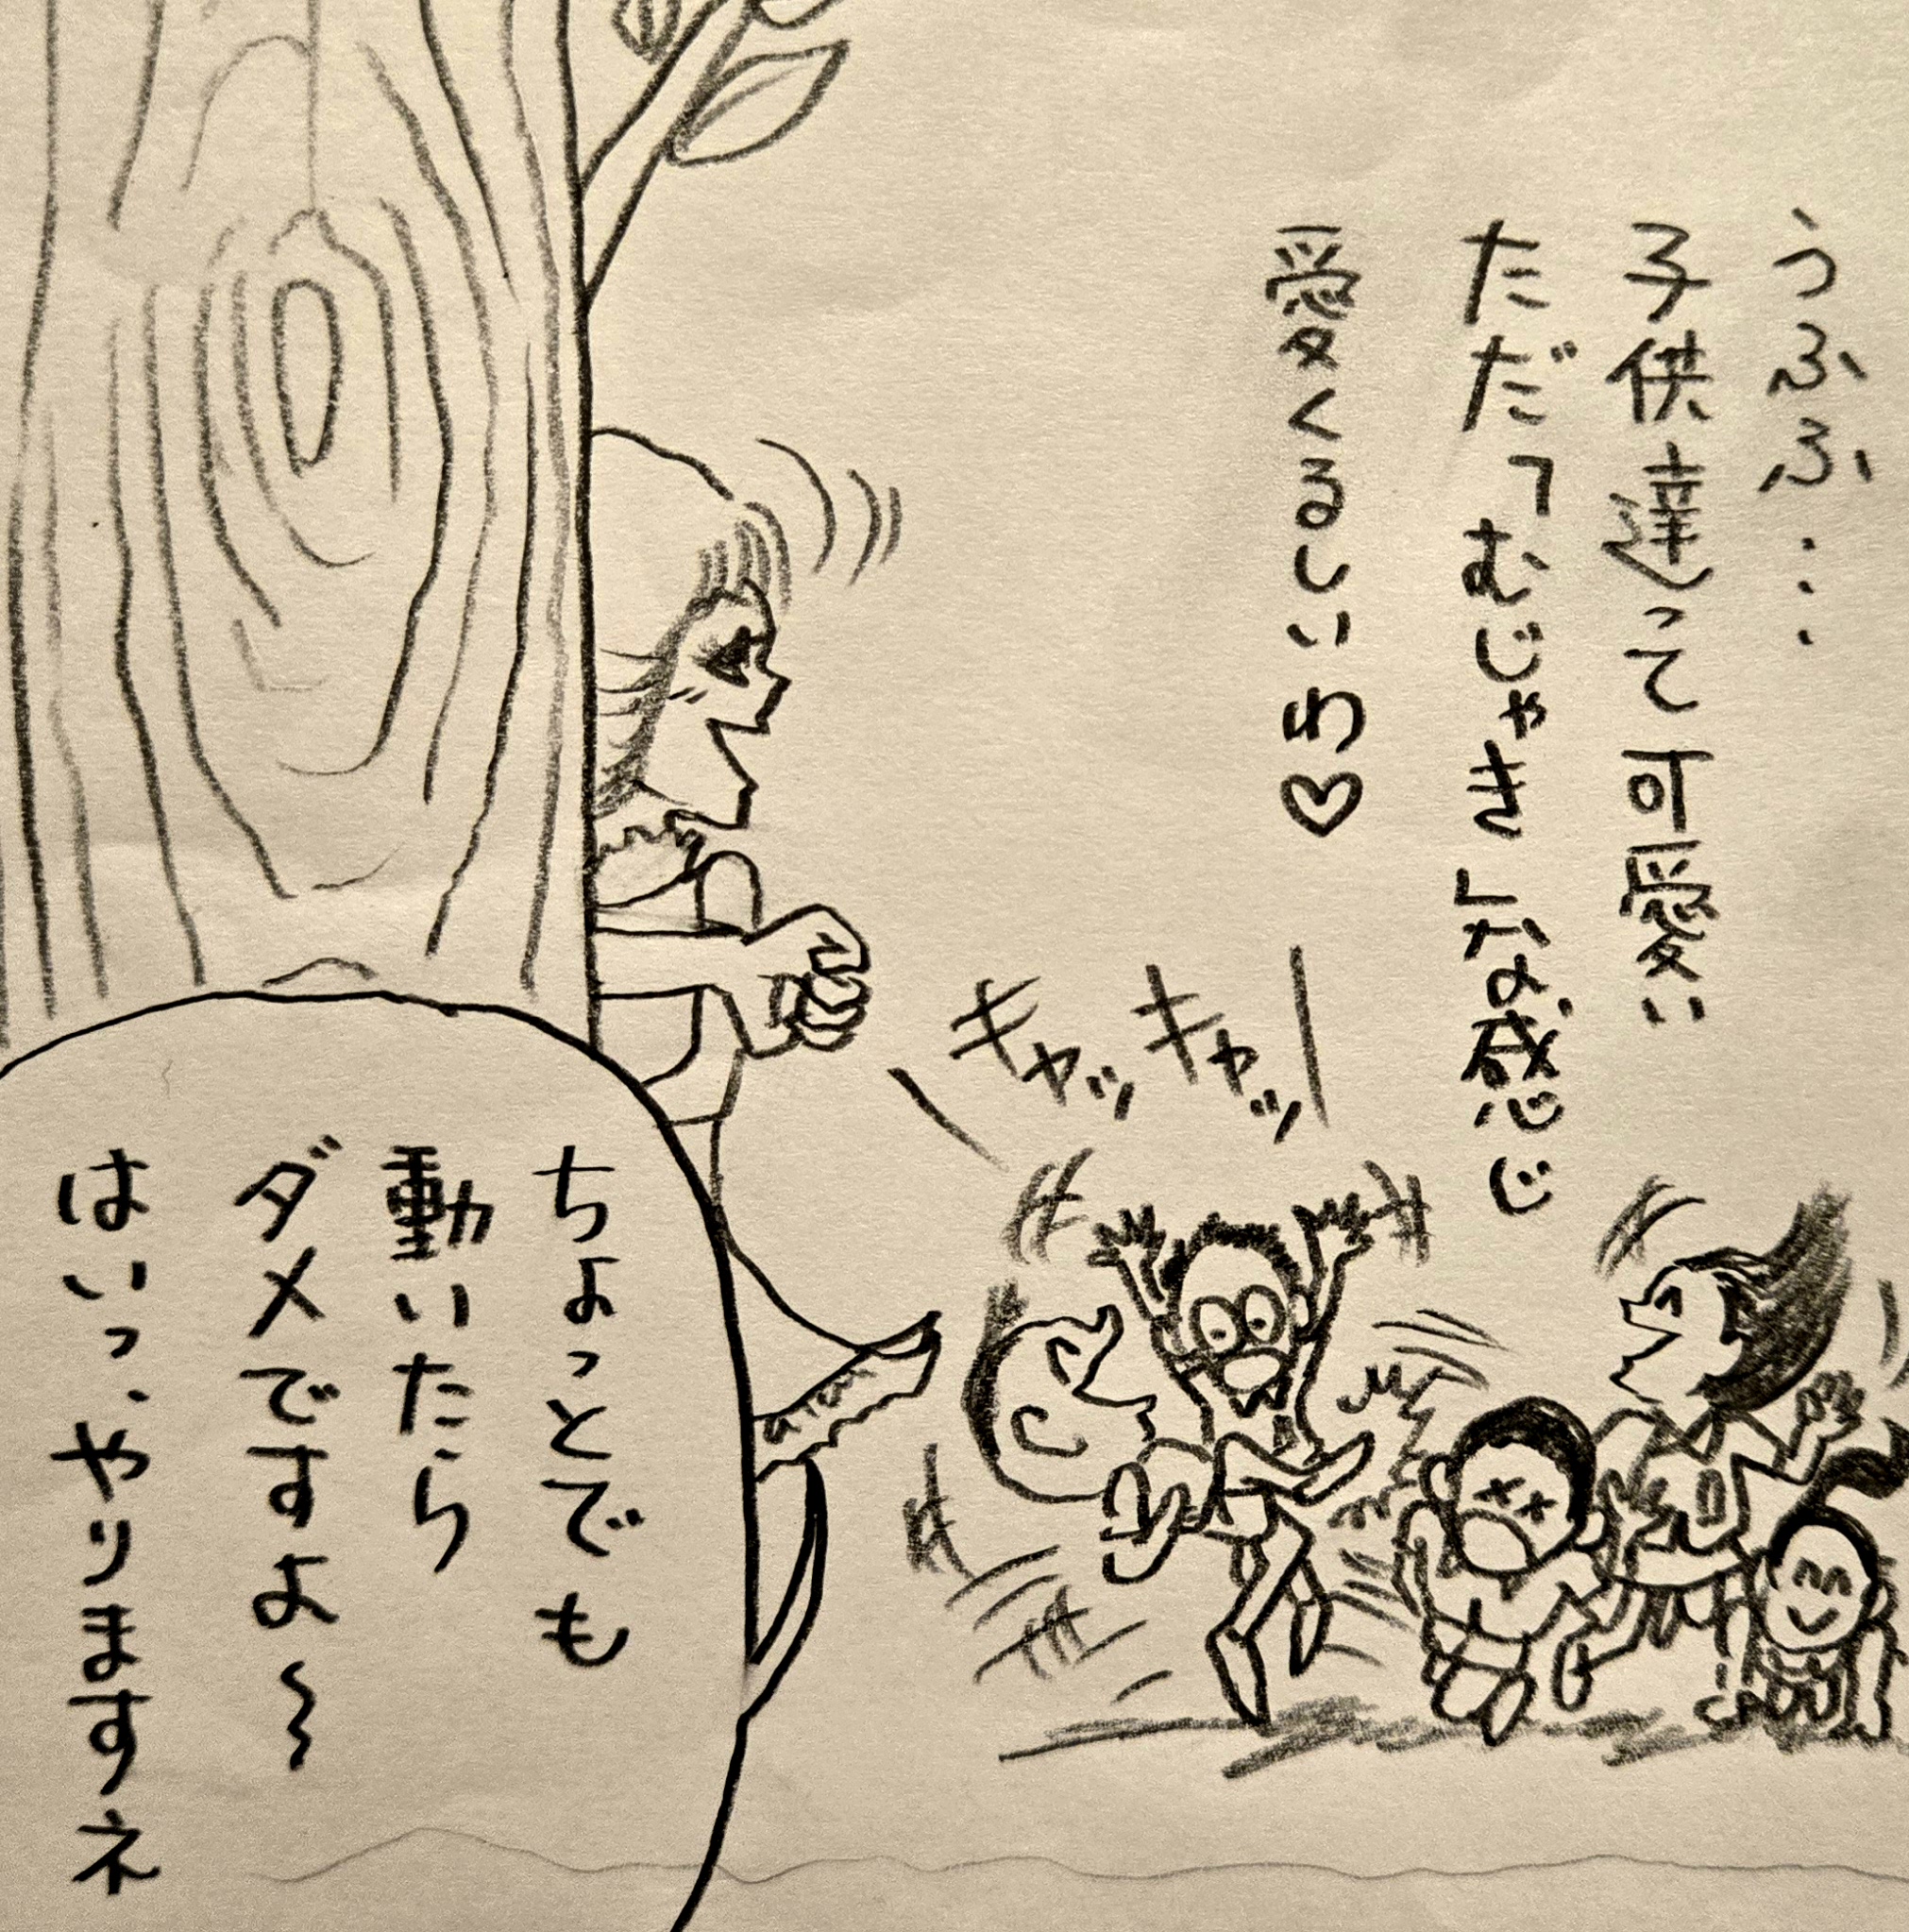 うふふ…
子供達って可愛い
ただ「むじゃき」な感じ
愛くるしいわ♡
キャッキャッ
ちょっとでも
動いたら
ダメですよ〜
はいっ、やりますネ